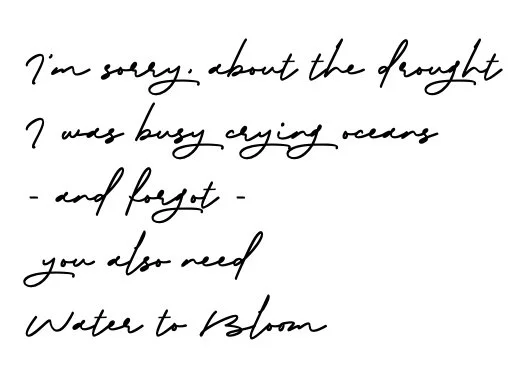 I'm sorry. about the drought
I was busy crying oceans
- and forgot -
you also need
Water to Bloom